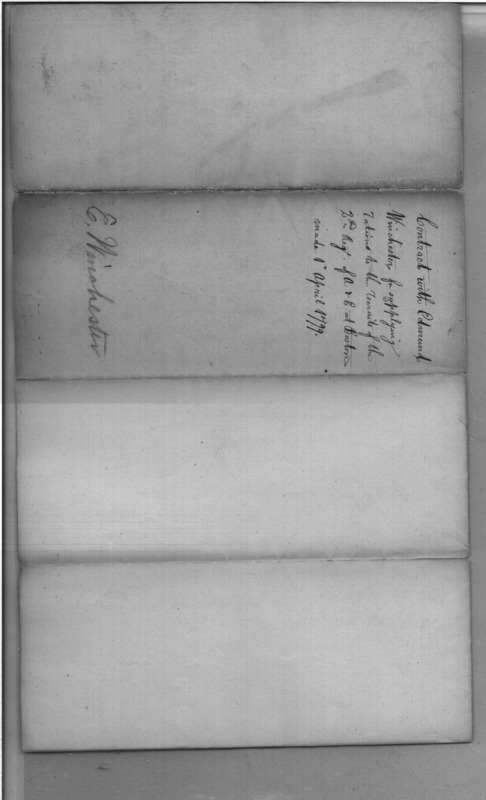 Contract with Edmund
Winchester for supplying
rations to the recruits of the
2nd Regt. of A. & E. at Boston
made 1st April 1799.
E. Winchester